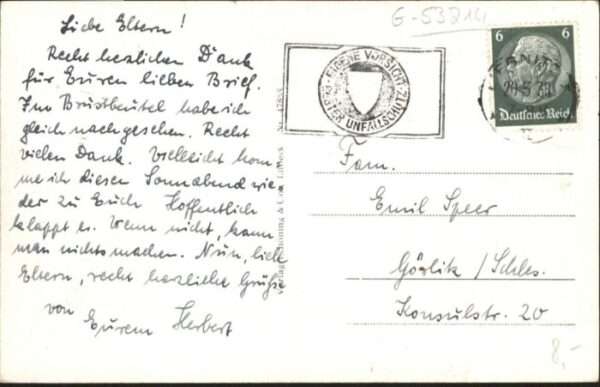 Liebe Eltern!
Recht herzlichen Dank
für Euren lieben Brief.
Im Brustbeutel habe ich
gleich nachgesehen. Recht
vielen Dank. Vielleicht kom-
me ich diesen Sonnabend wie-
der zu Euch. Hoffentlich
klappt es. Wenn nicht, kann
man nichts machen. Nun, liebe
Eltern, recht herzliche Grüße
von
Eurem Herbert
G-53214
EIGENE VORSICHT
BESTER UNFALLSCHUTZ
6 6
Deutsches Reich
Fam.
Emil Speer
Görlitz / Schles.
Konsulstr. 20
8,-